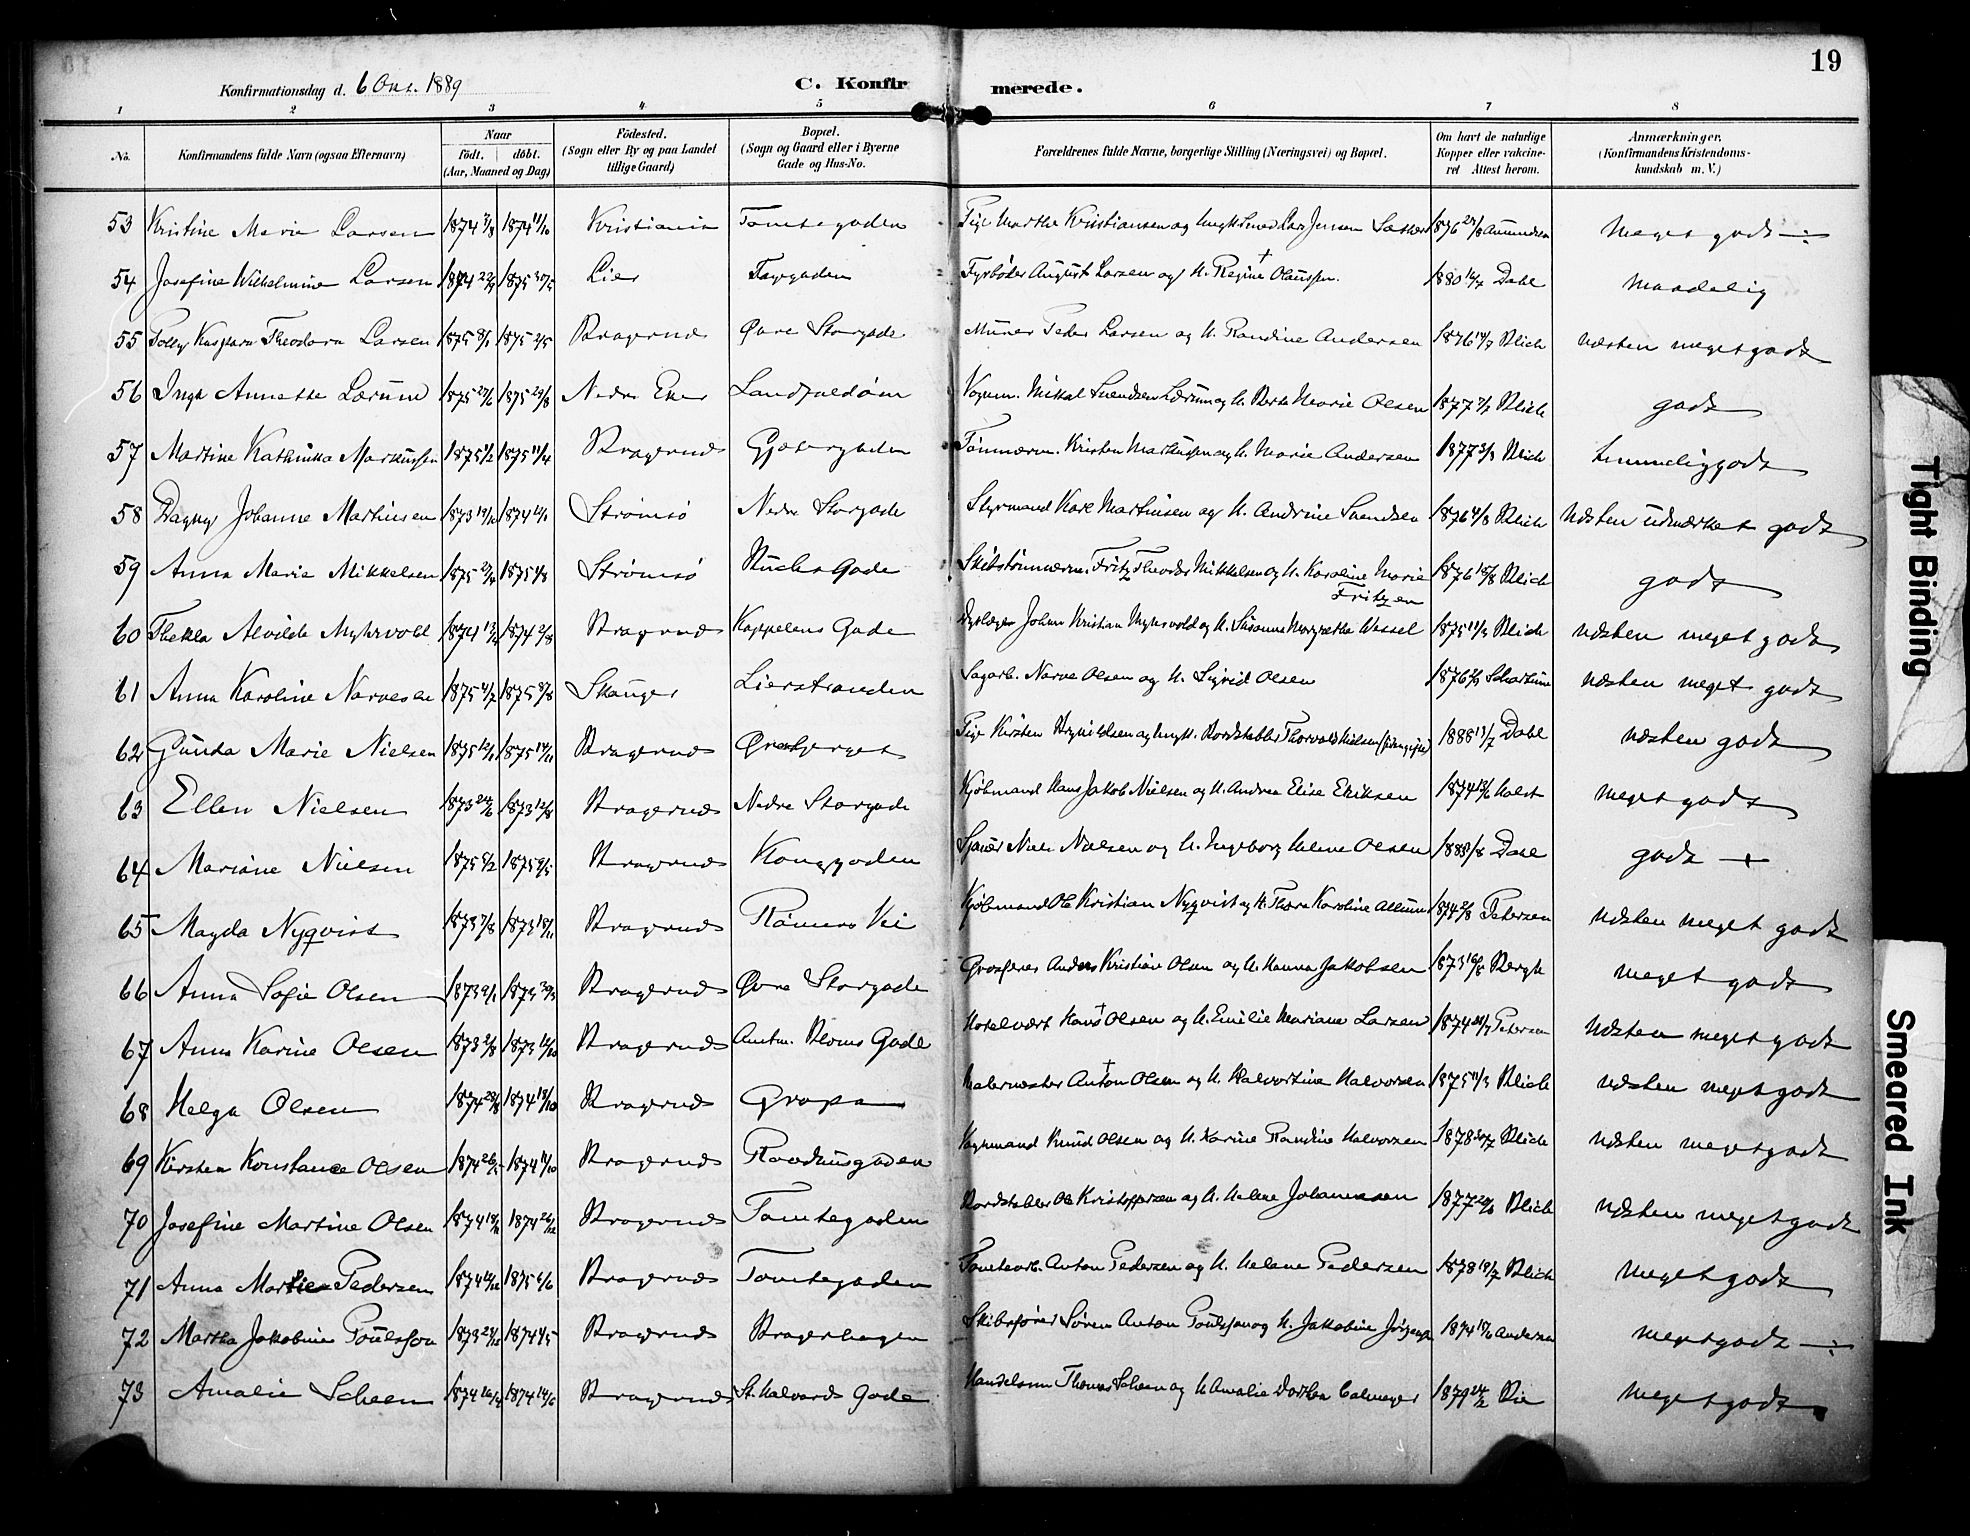 19
Konfirmationsdag d. 6 Okt. 1889
C. Konfirmerede.
1 2 3 4 5 6 7 8
No. Konfirmandens fulde Navn (ogsaa Efternavn) Naar født. døbt. (Aar, Maaned og Dag) Fødested. (Sogn eller By og paa Landet tillige Gaard) Bopæl. (Sogn og Gaard eller i Byerne Gade og Hus-No. Forældrenes fulde Navne, borgerlige Stilling (Næringsvei) og Bopæl. Om havt de naturlige Kopper eller vakcineret Attest herom. Anmærkninger, (Konfirmandens Kristendomskundskab m. V.)
53 Kristine Marie Larsen 1874 1874 11/10 Kristiania Tomtegaden Pige Marthe Kristiansen og Lars Jensen 1876 Amundsen Meget godt
54 Josefine Wilhelmine Larsen 1874 1875 Lier Fyrbøder August Larsen og H. Regine Olaussen. 1880 Dahl maadelig
55 Theodora Larsen 1875 1875 2/5 Bragernes Øvre Storgade Murer Peder Larsen og H. Randine Andersen 1876 Blich næsten meget godt
56 Inga Annette Lærum 1875 1875 29/8 Nedre Eker Landfaldøen Vognm. Mikkel Svendsen Lærum og H. Berte Marie Olsen 1877 Blich godt
57 Martine Kathinka Markussen 1875 1875 11/4 Bragernes Gjetergaden Tømmerm. Kristen Markussen og H. Marie Andersen 1877 Blich temmelig godt
58 Dagny Johanne Martinsen 1873 1874 Strømsø Nedre Storgade Styrmand Karl Martinsen og H. Andrine Svendsen 1876 4/8 Blich næsten udmærket godt
59 Anna Marie Mikkelsen 1875 1875 1/8 Strømsø Gade Skibstømmerm. Fritz Theodor Mikkelsen og H. Karoline Marie Fritzen 1876 Blich godt
60 Thekla Alvilde Myhrvold 1874 1874 2/8 Bragernes Kappelens Gade Johan Kristian Myhrvold og H. Susanne Margrethe Wessel 1875 Blich næsten meget godt
61 Anna Karoline Narvesen 1875 1875 8/8 Skauger Lierstranden Sagarb. Narve Olsen og H. Sigrid Olsen 1876 næsten meget godt
62 Gunda Marie Nielsen 1875 1875 14/11 Bragernes Pige Kirsten og Bordstabler Thorvald Nielsen 1888 Dahl næsten godt
63 Ellen Nielsen 1873 1873 12/8 Bragernes Nedre Storgade Kjøbmand Hans Jakob Nielsen og H. Andrea Elise Eriksen 1874 Holst meget godt
64 Mariane Nielsen 1875 1875 Bragernes Konggaden Sjauer Niels Nielsen og H. Ingeborg Helene Olsen 1888 Dahl godt +
65 Magda Nyqvist 1873 7/8 1873 Bragernes Rømers Vei Kjøbmand Ole Kristian Nyqvist og H. Thora Karoline 1874 Petersen næsten meget godt
66 Anna Sofie Olsen 1873 1873 30/3 Bragernes Øvre Storgade Anders Kristian Olsen og H. Hanna Jakobsen 1873 Bergh meget godt
67 Anna Karine Olsen 1873 2/8 1873 Bragernes Amtm. Bloms Gade Hotelvært Hans Olsen og H. Emilie Mariane Larsen 1874 Petersen næsten meget godt
68 Helga Olsen 1874 1874 18/10 Bragernes Malermester Anton Olsen og H. Halvortine Halvorsen 1875 Blich næsten meget godt
69 Kirsten Konstance Olsen 1874 1874 11/10 Bragernes Raadhusgaden Knud Olsen og H. Karine Randine Halvorsen 1878 Blich næsten meget godt
70 Josefine Martine Olsen 1874 1874 26/12 Bragernes Tomtegaden Bordstabler Ole Kristoffersen og H. Helene Johannessen 1877 Blich næsten meget godt
71 Anna Pedersen 1874 1875 Bragernes Tomtegaden Tomtearb. Anton Pedersen og H. Helene Pedersen 1878 Blich meget godt
72 Martha Jakobine Poulsson 1873 1874 Bragernes Bragerhagen Skibsfører Søren Anton Poulsson og H. Jakobine 1874 Andersen meget godt
73 Amalie Scheen 1874 1874 14/6 Bragernes St. Halvards Gade Handelsm. Thomas Scheen og H. Amalie Dorthea Calmeyer 1879 24/2 meget godt
Tight Binding
Smeared Ink